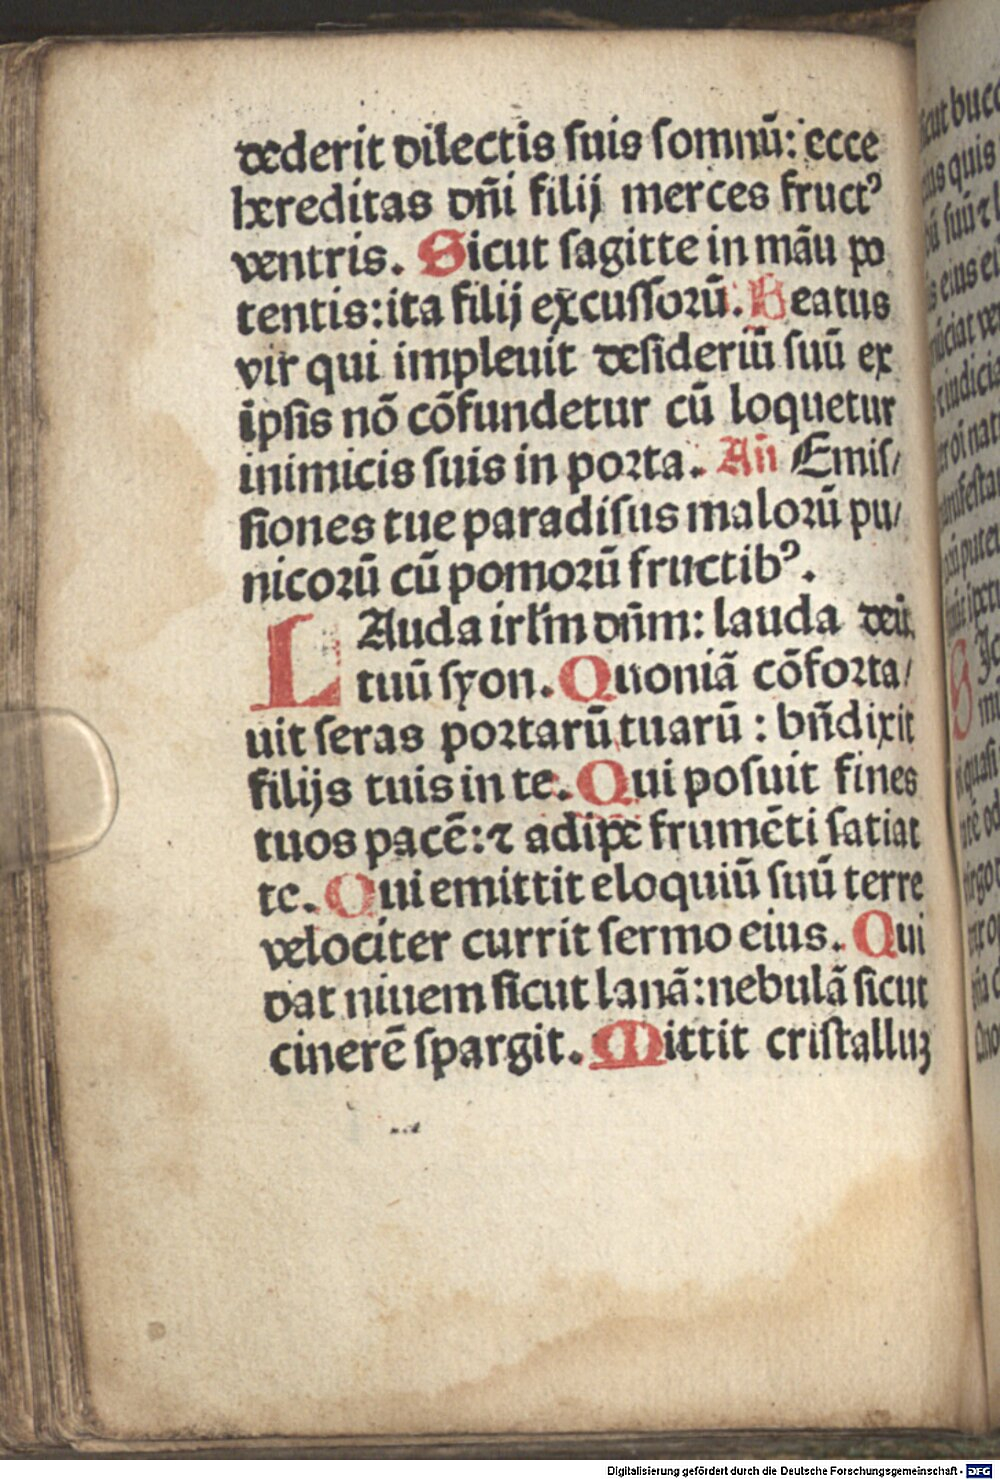 dederit dilectis suis somnū: ecce
hereditas dñi filij merces fruct⁹
ventris. Sicut sagitte in māu po
tentis: ita filij excussorū. Beatus
vir qui impleuit desideriū suū ex
ipsis nō cōfundetur cū loquetur
inimicis suis in porta. Añ Emis/
siones tue paradisus malorū pu/
nicorū cū pomorū fructib⁹.
LAuda irlm̄ dñm: lauda deū
tuū syon. Quoniā cōforta/
uit seras portarū tuarū: bñdixit
filijs tuis in te. Qui posuit fines
tuos pacē: ⁊ adipe frumēti satiat
te. Qui emittit eloquiū suū terre
velociter currit sermo eius. Qui
dat niuem sicut lanā: nebulā sicut
cinerē spargit. Mittit cristalluꝫ
Digitalisierung gefördert durch die Deutsche Forschungsgemeinschaft - DFG